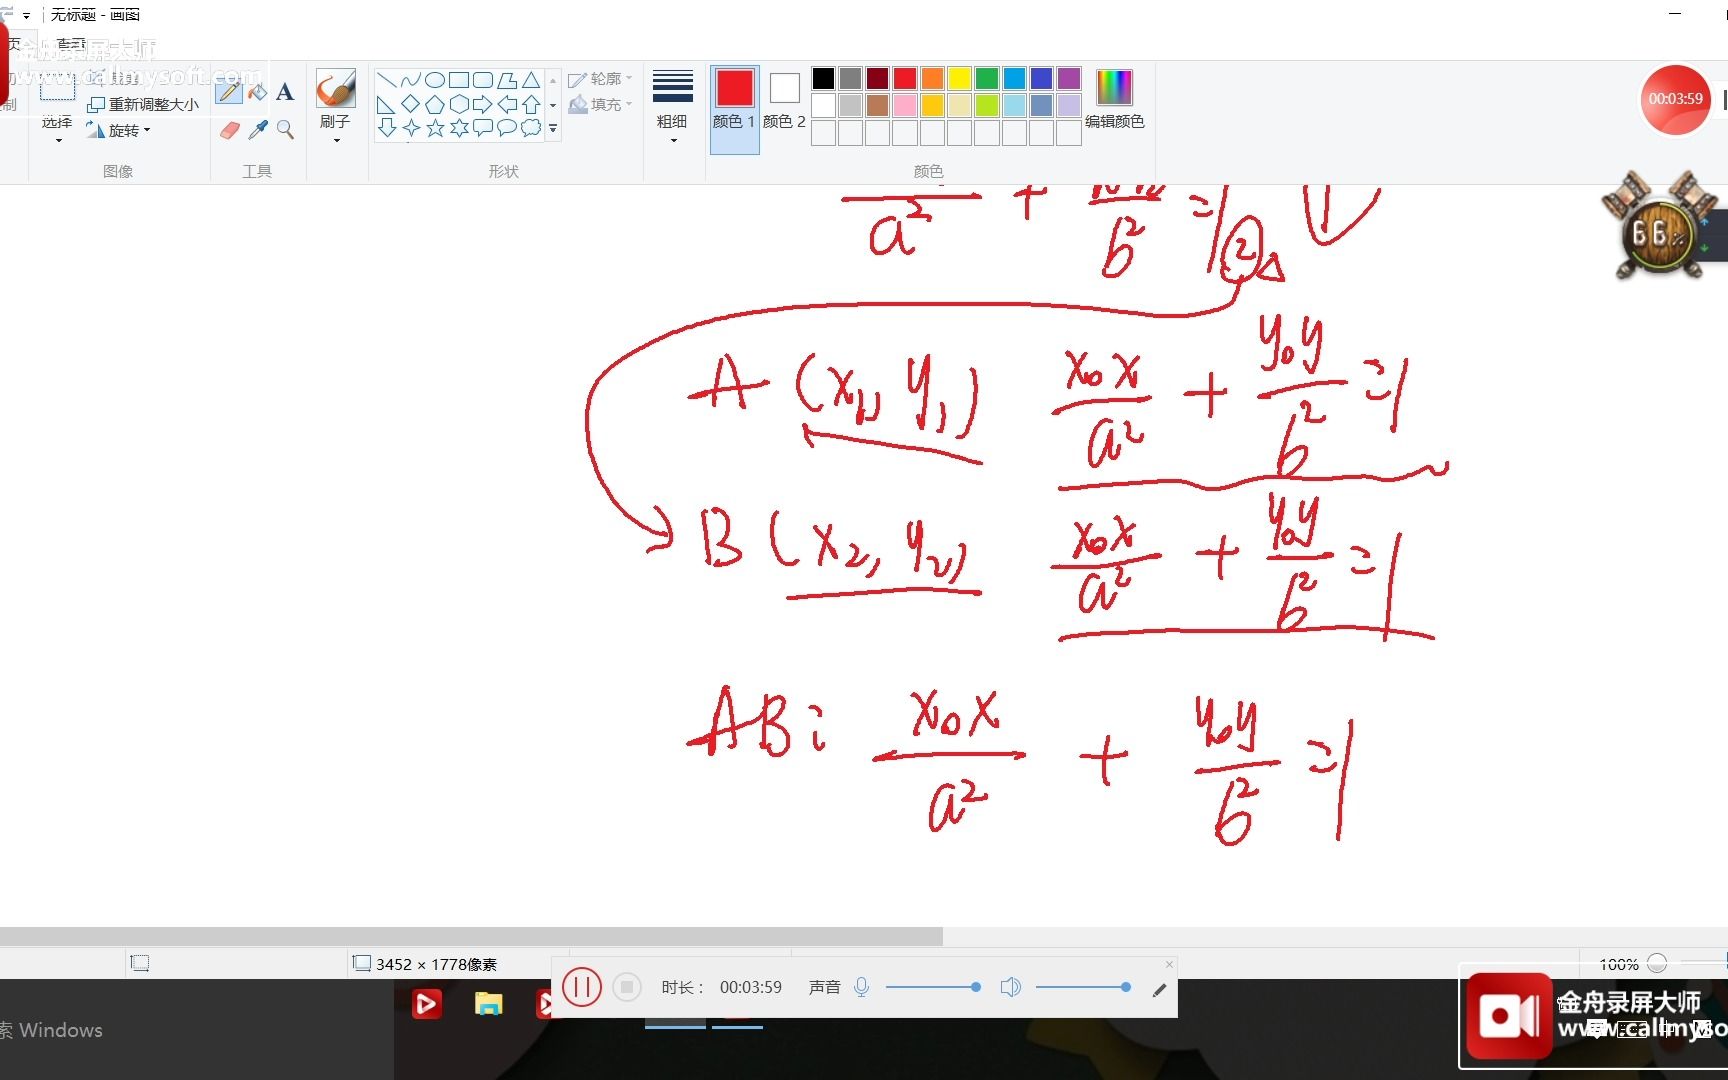 无标题 - 画图
查看
金舟录屏大师
www.callmysoft.com
重新调整大小
旋转
选择
图像
A
工具
刷子
形状
轮廓
填充
粗细
颜色 1
颜色 2
编辑颜色
颜色
00:03:59
66%
a² + b² =1 ②
A (x₁, y₁) x₀x/a² + y₀y/b² =1
B (x₂, y₂) x₀x/a² + y₀y/b² =1
AB: x₀x/a² + y₀y/b² =1
3452 × 1778像素
100%
时长： 00:03:59 声音
索 Windows
金舟录屏大师
www.callmyso